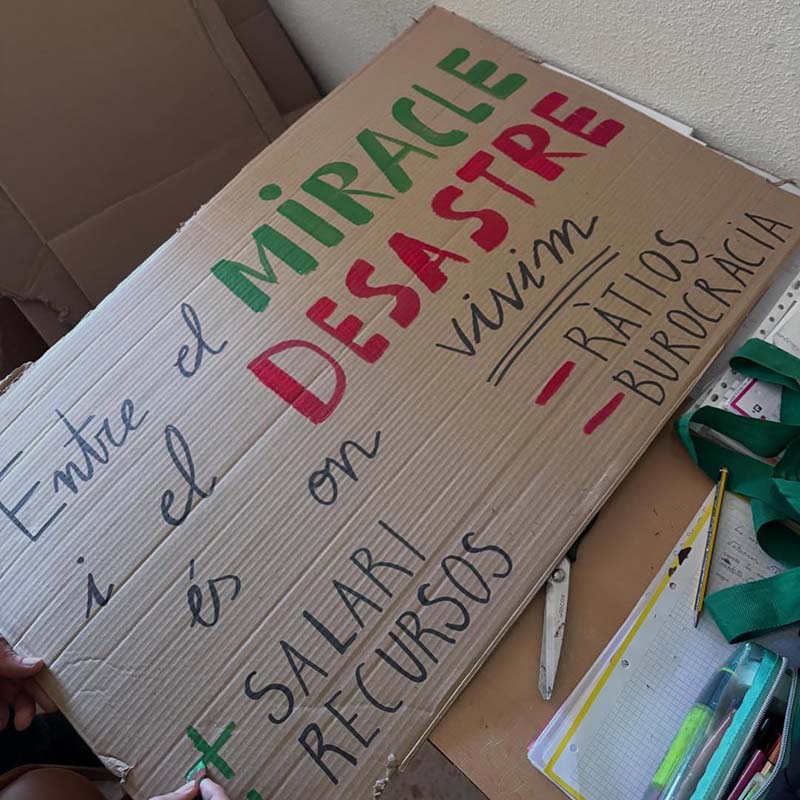 Entre el MIRACLE
i el DESASTRE
és on vivim
+ SALARI
RECURSOS
- RÀTIOS
- BUROCRÀCIA